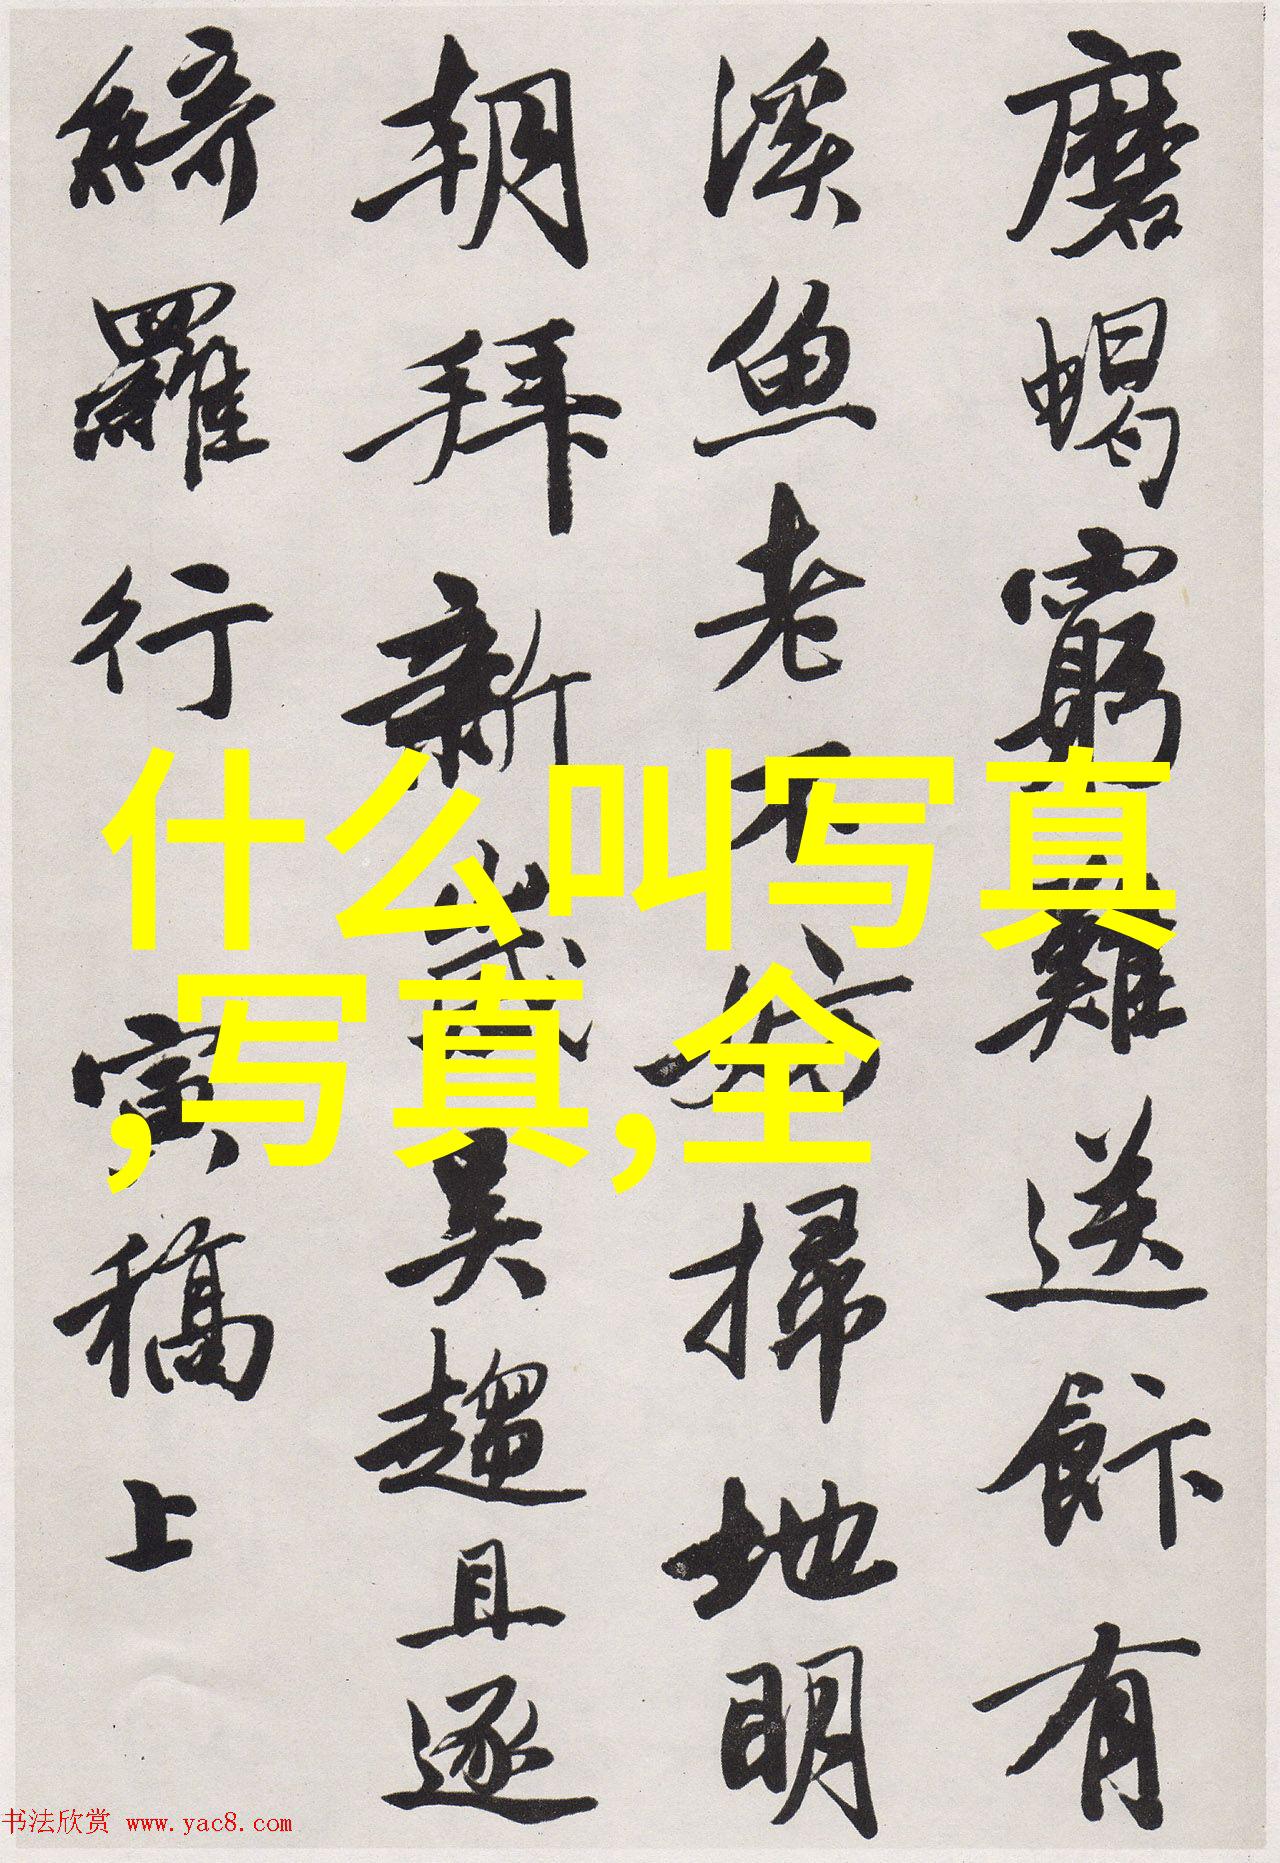 磨蝎窮難送飰有
溪魚老不妨掃地明
朝拜新歲吴趨且逐
綺羅行 寅稿上
什么叫写真
,写真,全
书法欣赏 www.yac8.com